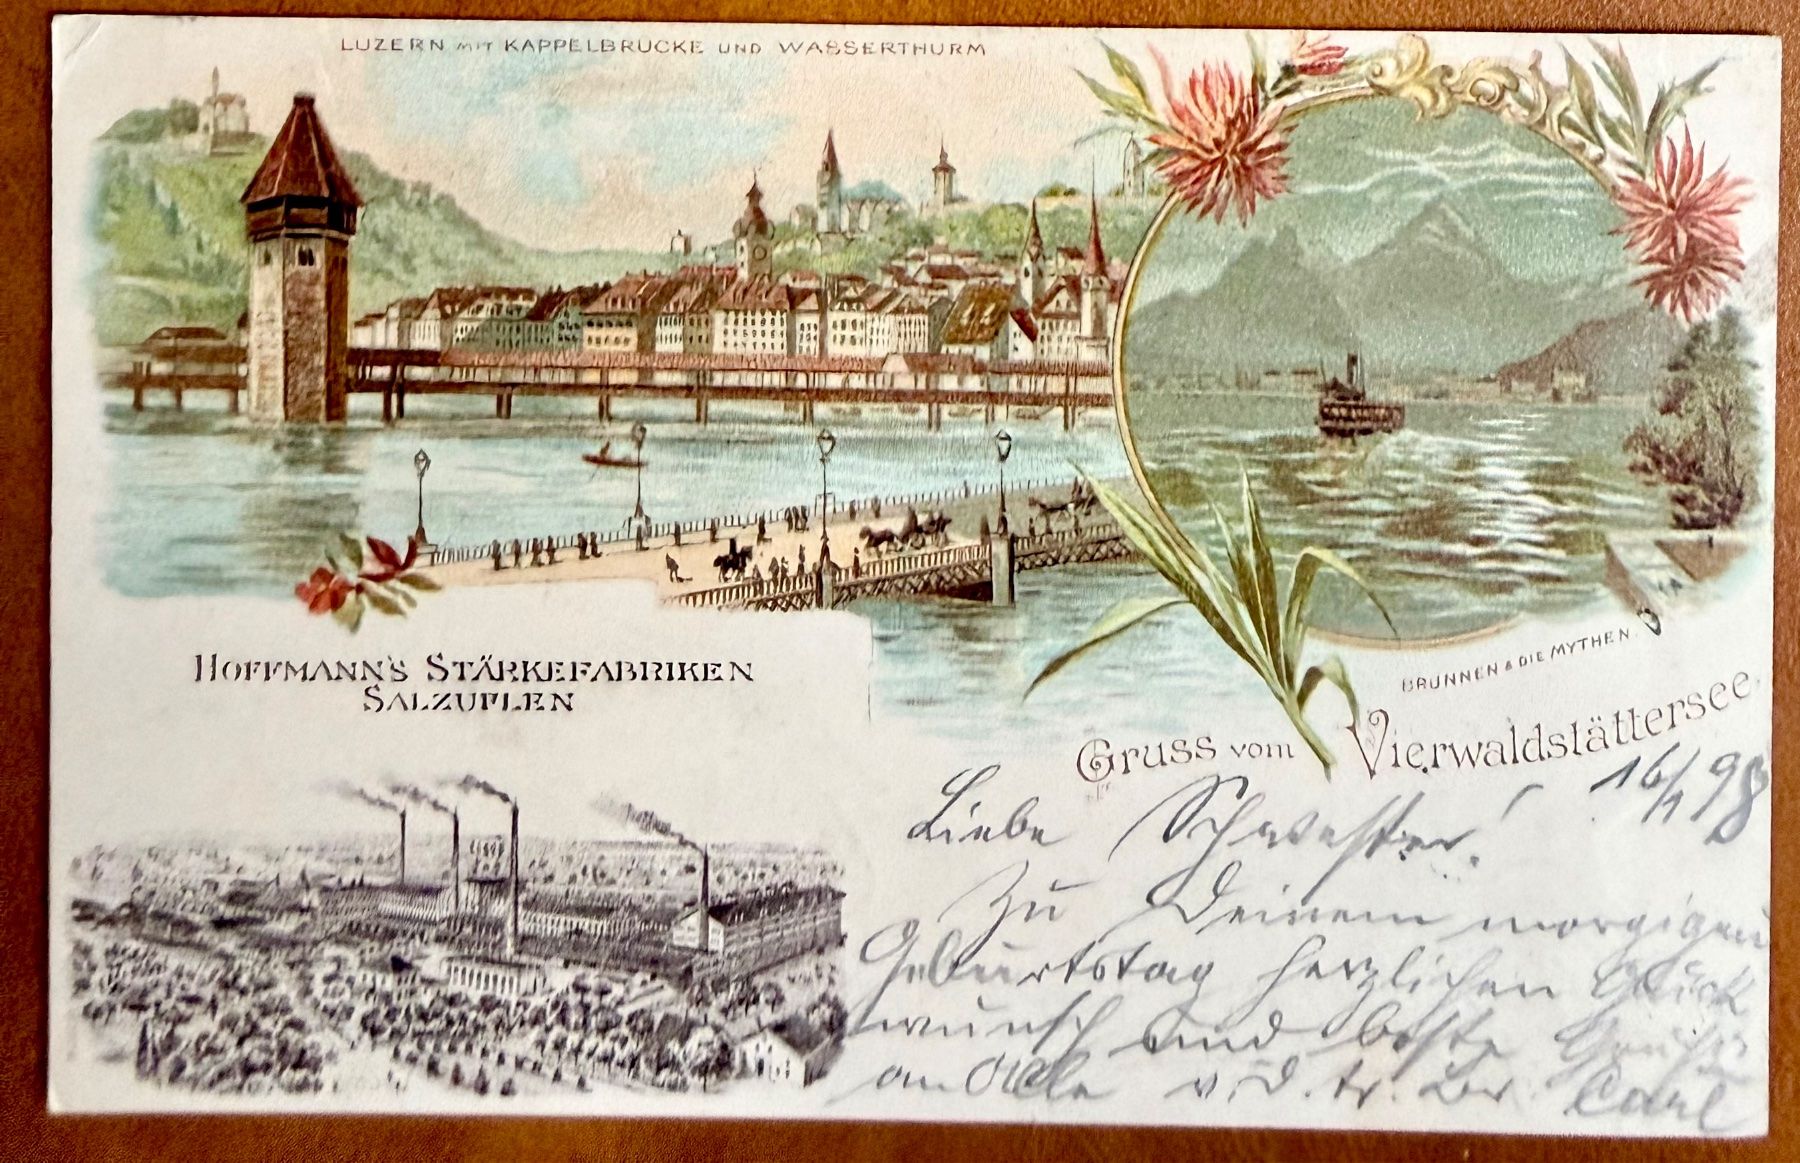 LUZERN MIT KAPPELBRÜCKE UND WASSERTHURM
HOFFMANN'S STÄRKEFABRIKEN
SALZUFLEN
BRUNNEN & DIE MYTHEN
Gruss vom Vierwaldstättersee
16/1 98
Liebe Schwester!
Zu Deinem morgigen
Geburtstag herzlichen Glück
wunsch und beste Grüße
an Alle v. D. tr. Br Carl